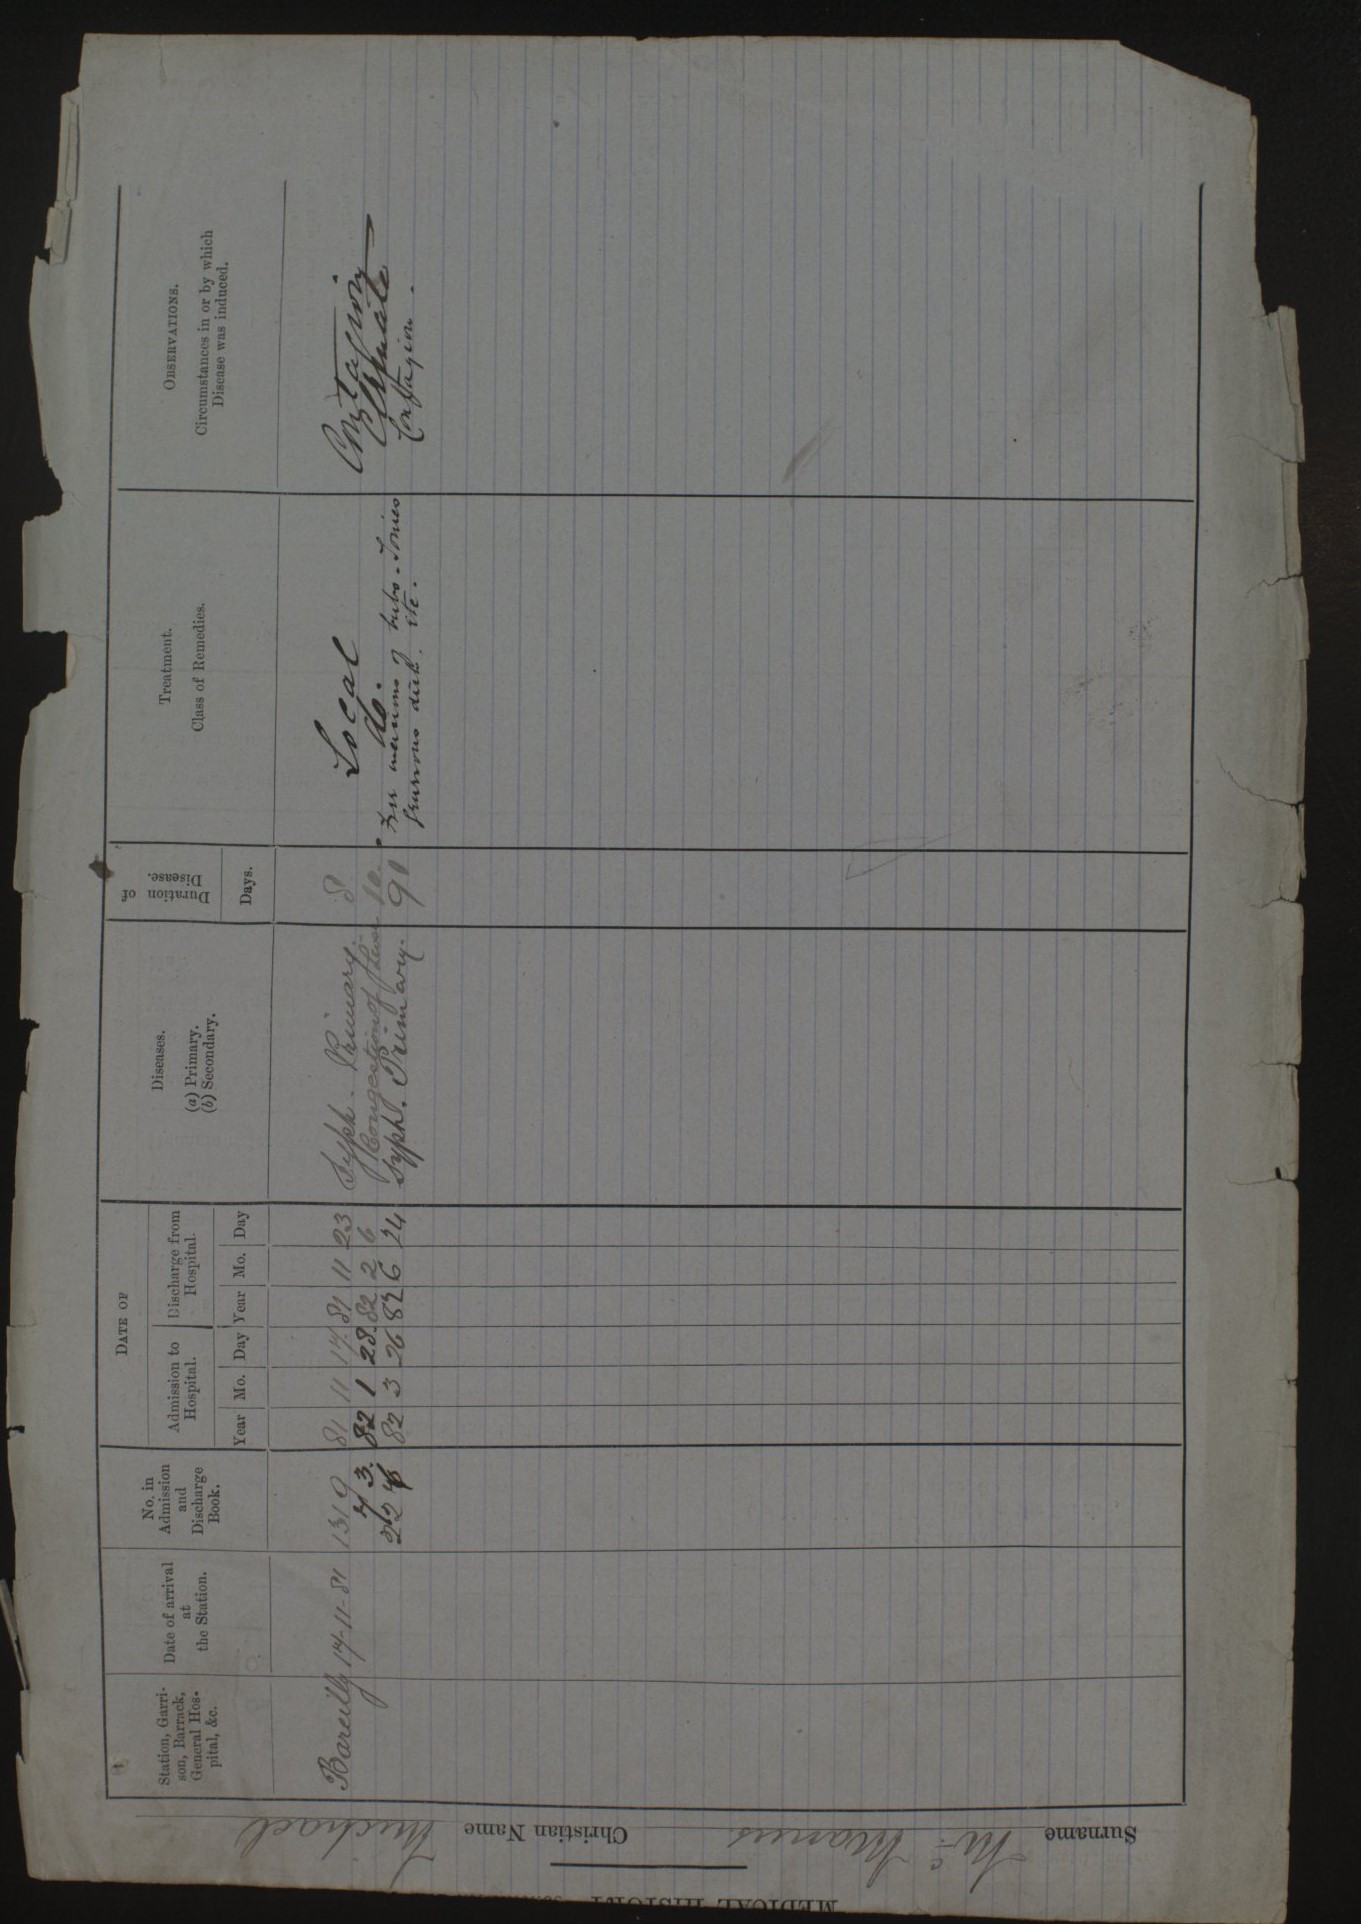 MEDICAL HISTORY
Surname Mc Manus Christian Name Michael
Station, Garri-
son, Barrack,
General Hos-
pital, &c.
Date of arrival
at
the Station.
No. in
Admission
and
Discharge
Book.
DATE OF
Admission to
Hospital.
Year Mo. Day
Discharge from
Hospital.
Year Mo. Day
Diseases.
(a) Primary.
(b) Secondary.
Duration of
Disease.
Days.
Treatment.
Class of Remedies.
OBSERVATIONS.
Circumstances in or by which
Disease was induced.
Bareilly 17-11-81 1319 81 11 17 81 11 23 Syph. Primary. 8 Local Contagion
73. 82 1 28 82 2 6 Congestion of Liver 10 do. Climate
224 82 3 26 82 6 24 Syph. Primary. 91 bubo - Tonics Contagion.
etc.